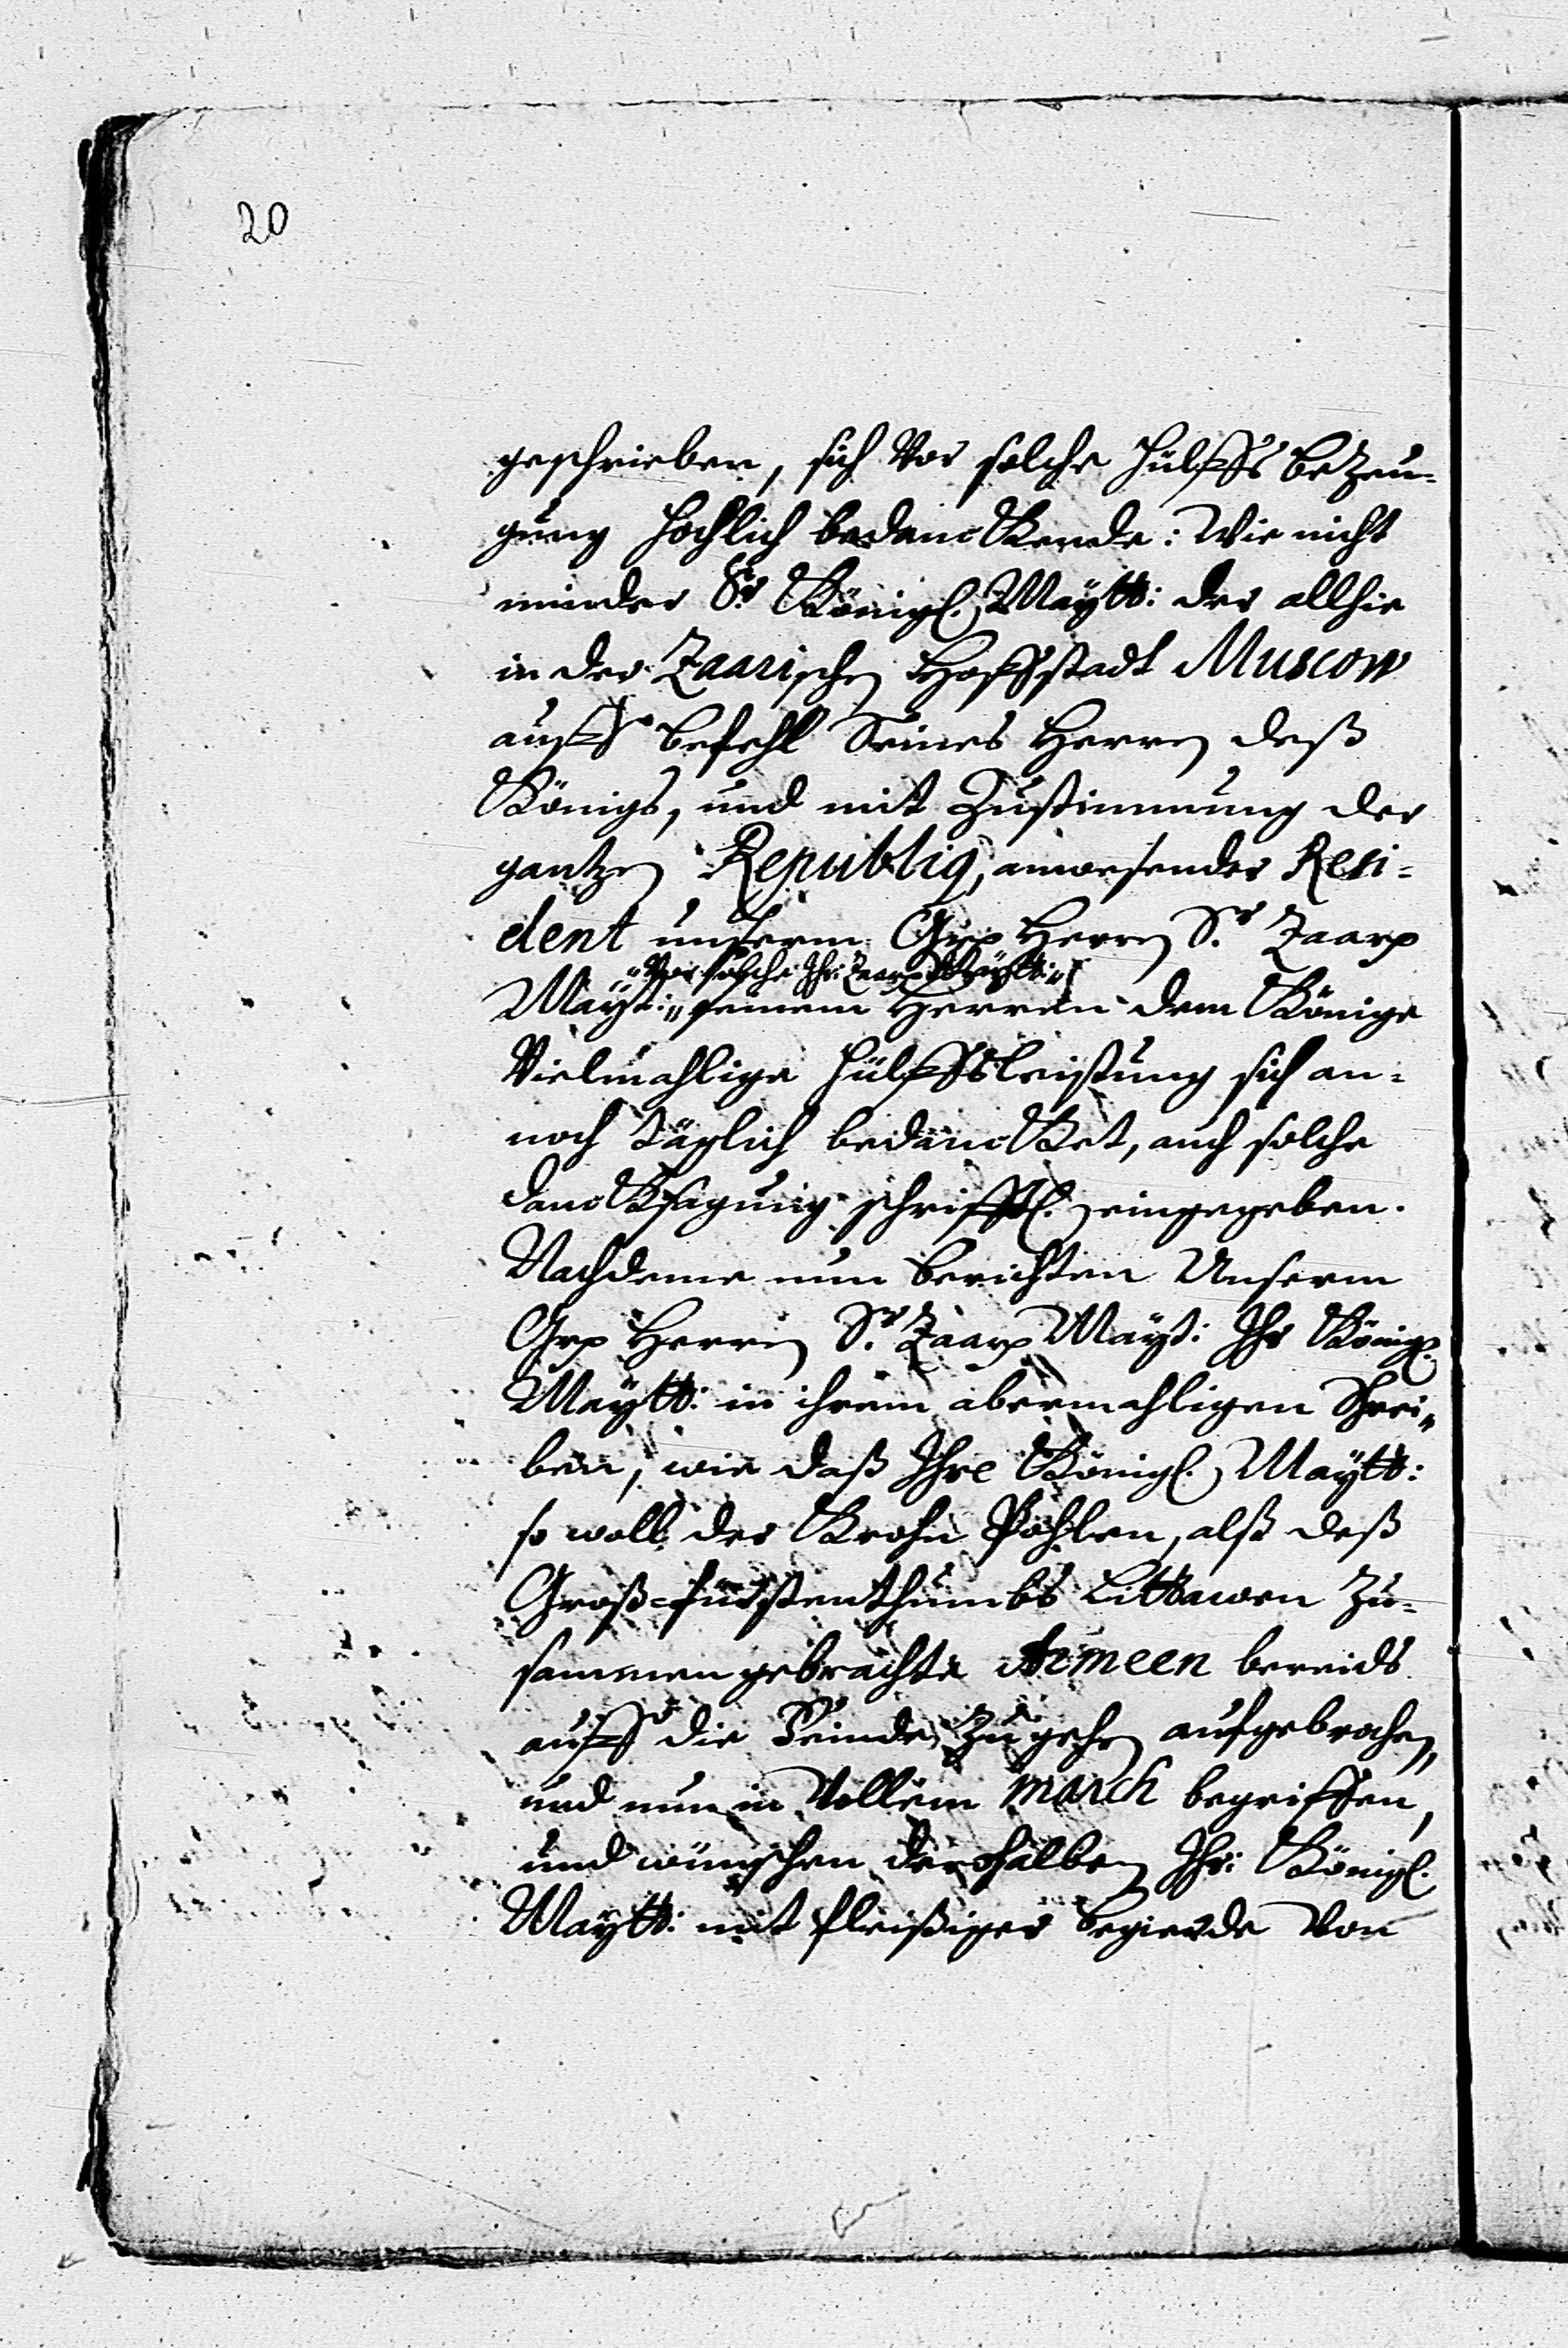 20
geschrieben, sich Vor solche hülffs bezeu-
gung höchlich bedanckende: Wie nicht
minder Sr Königl. Maytt: der allhie
in der Zaarischen Hoffstadt Muscow
auff befehl Seines Herren deß
Königs, und mit Zustimmung der
gantzen Republiq, anwesender Resi-
dent unserm Grp Herren Sr. Zaarp
„Vor solche Ihr: Zaarp Maÿtt:„
Maÿt:„ seinem Herren dem Könige
Vielmahlige hülffsleistung sich an-
noch Täglich bedancket, auch solche
dancksagung schrifftl. eingegeben.
Nachdeme nun berichten Unserm
Grp Herren Sr. Zaarp Maÿt: Ihr Königl.
Maÿtt: in ihrem abermahligen Schrei-
ben, wie daß Ihre Königl. Maÿtt:
so woll der Krohn Pohlen, alß deß
Groß-fürstenthumbs Littawen Zu-
sammen gebrachte Armeen bereids
auff die Feinde Zu gehen aufgebrochen,
und nun in Vollem march begriffen,
und wünschen derohalben Ihr: Königl.
Maÿtt: mit fleißiger begierde Von